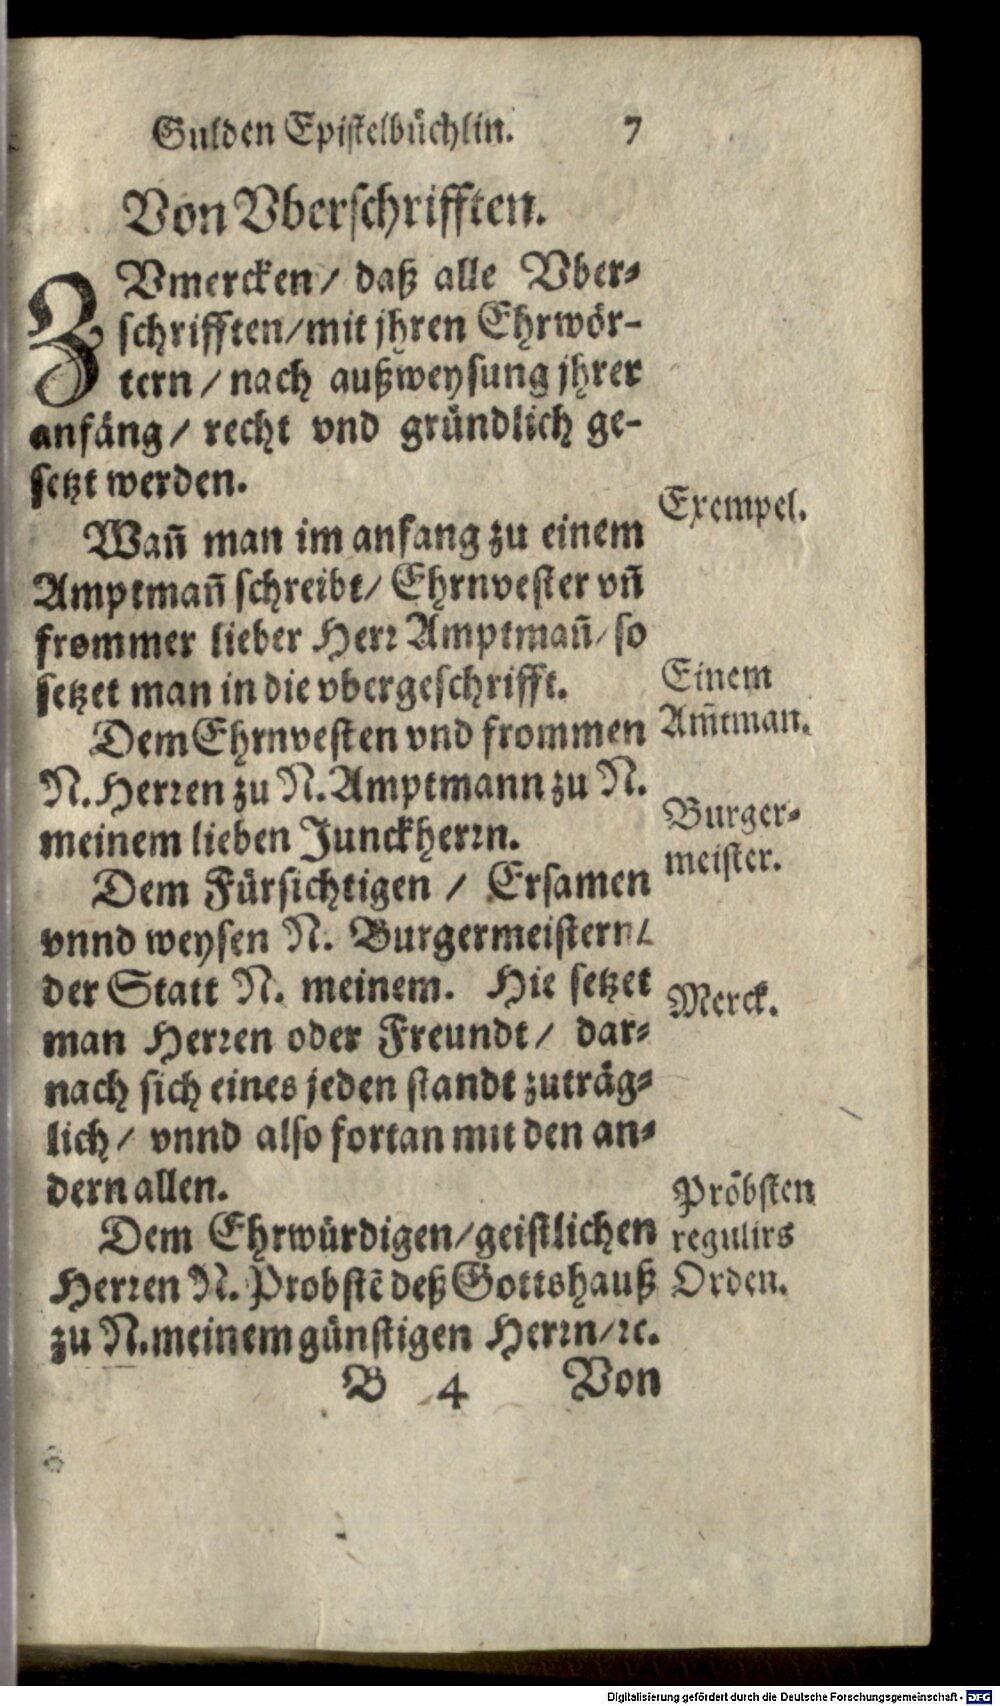 Gulden Epistelbüchlin. 7
Von Vberschrifften.
ZVmercken / daß alle Vber-
schrifften / mit jhren Ehrwör-
tern / nach außweysung jhrer
anfäng / recht vnd gründlich ge-
setzt werden.
Exempel.
Wañ man im anfang zu einem
Amptmañ schreibt / Ehrnvester vñ
frommer lieber Herr Amptmañ / so
setzet man in die vbergeschrifft.
Einem
Am̃tman.
Dem Ehrnvesten vnd frommen
N. Herren zu N. Amptmann zu N.
meinem lieben Junckherrn.
Burger-
meister.
Dem Fürsichtigen / Ersamen
vnnd weysen N. Burgermeistern /
der Statt N. meinem. Hie setzet
man Herren oder Freundt / dar-
nach sich eines jeden standt zuträg-
lich / vnnd also fortan mit den an-
dern allen.
Merck.
Pröbsten
regulirs
Orden.
Dem Ehrwürdigen / geistlichen
Herren N. Probstẽ deß Gottshauß
zu N. meinem günstigen Herrn / ꝛc.
B 4 Von
Digitalisierung gefördert durch die Deutsche Forschungsgemeinschaft - DFG